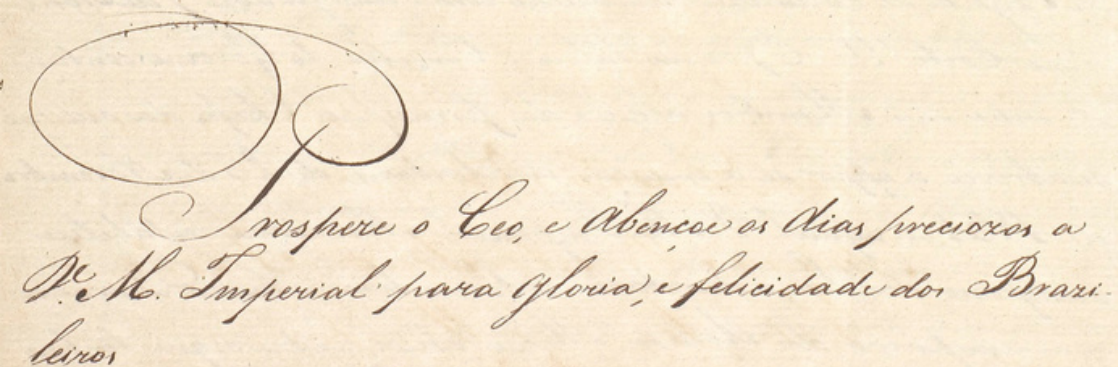 Prospere o Ceo, e Abençoe os dias preciozos a
V. M. Imperial para gloria, e felicidade dos Brazi-
leiros